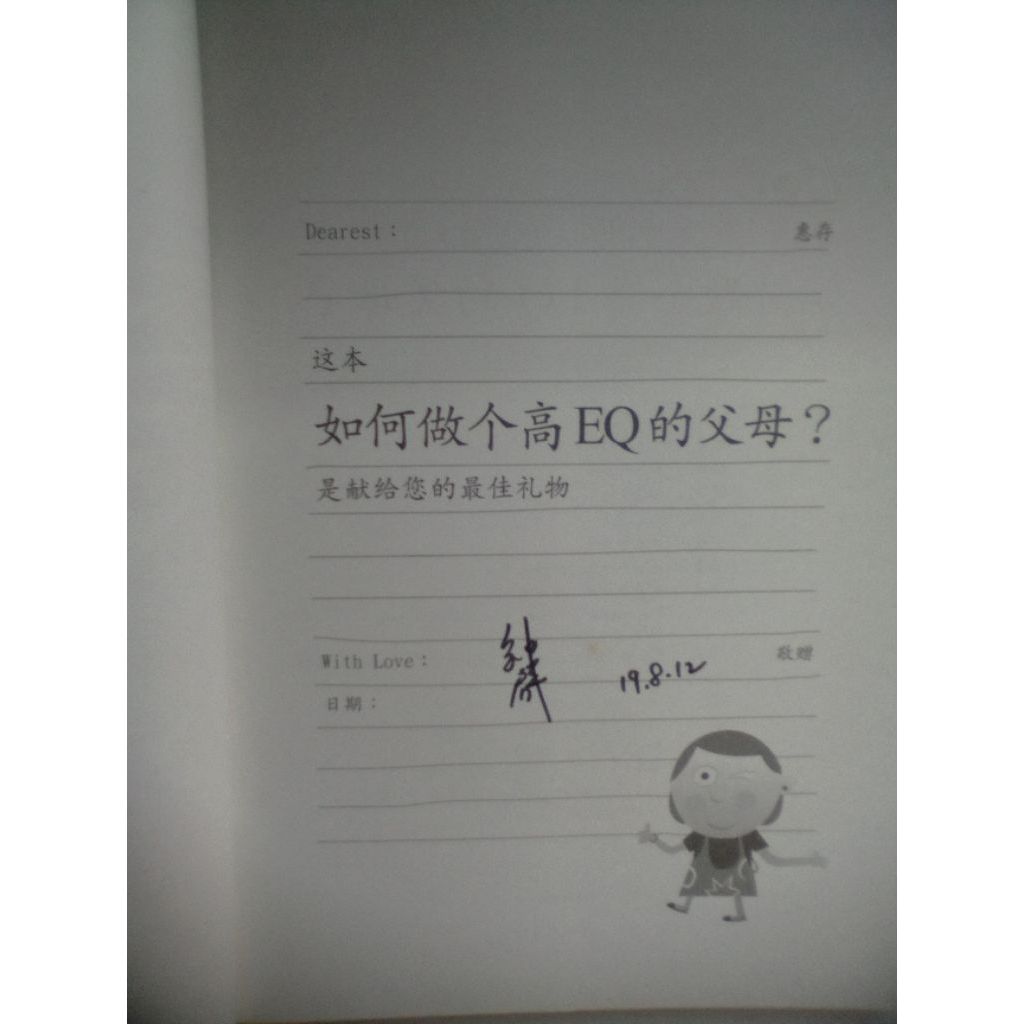 Dearest： 惠存
这本
如何做个高EQ的父母？
是献给您的最佳礼物
With Love： 敬赠
19.8.12
日期：